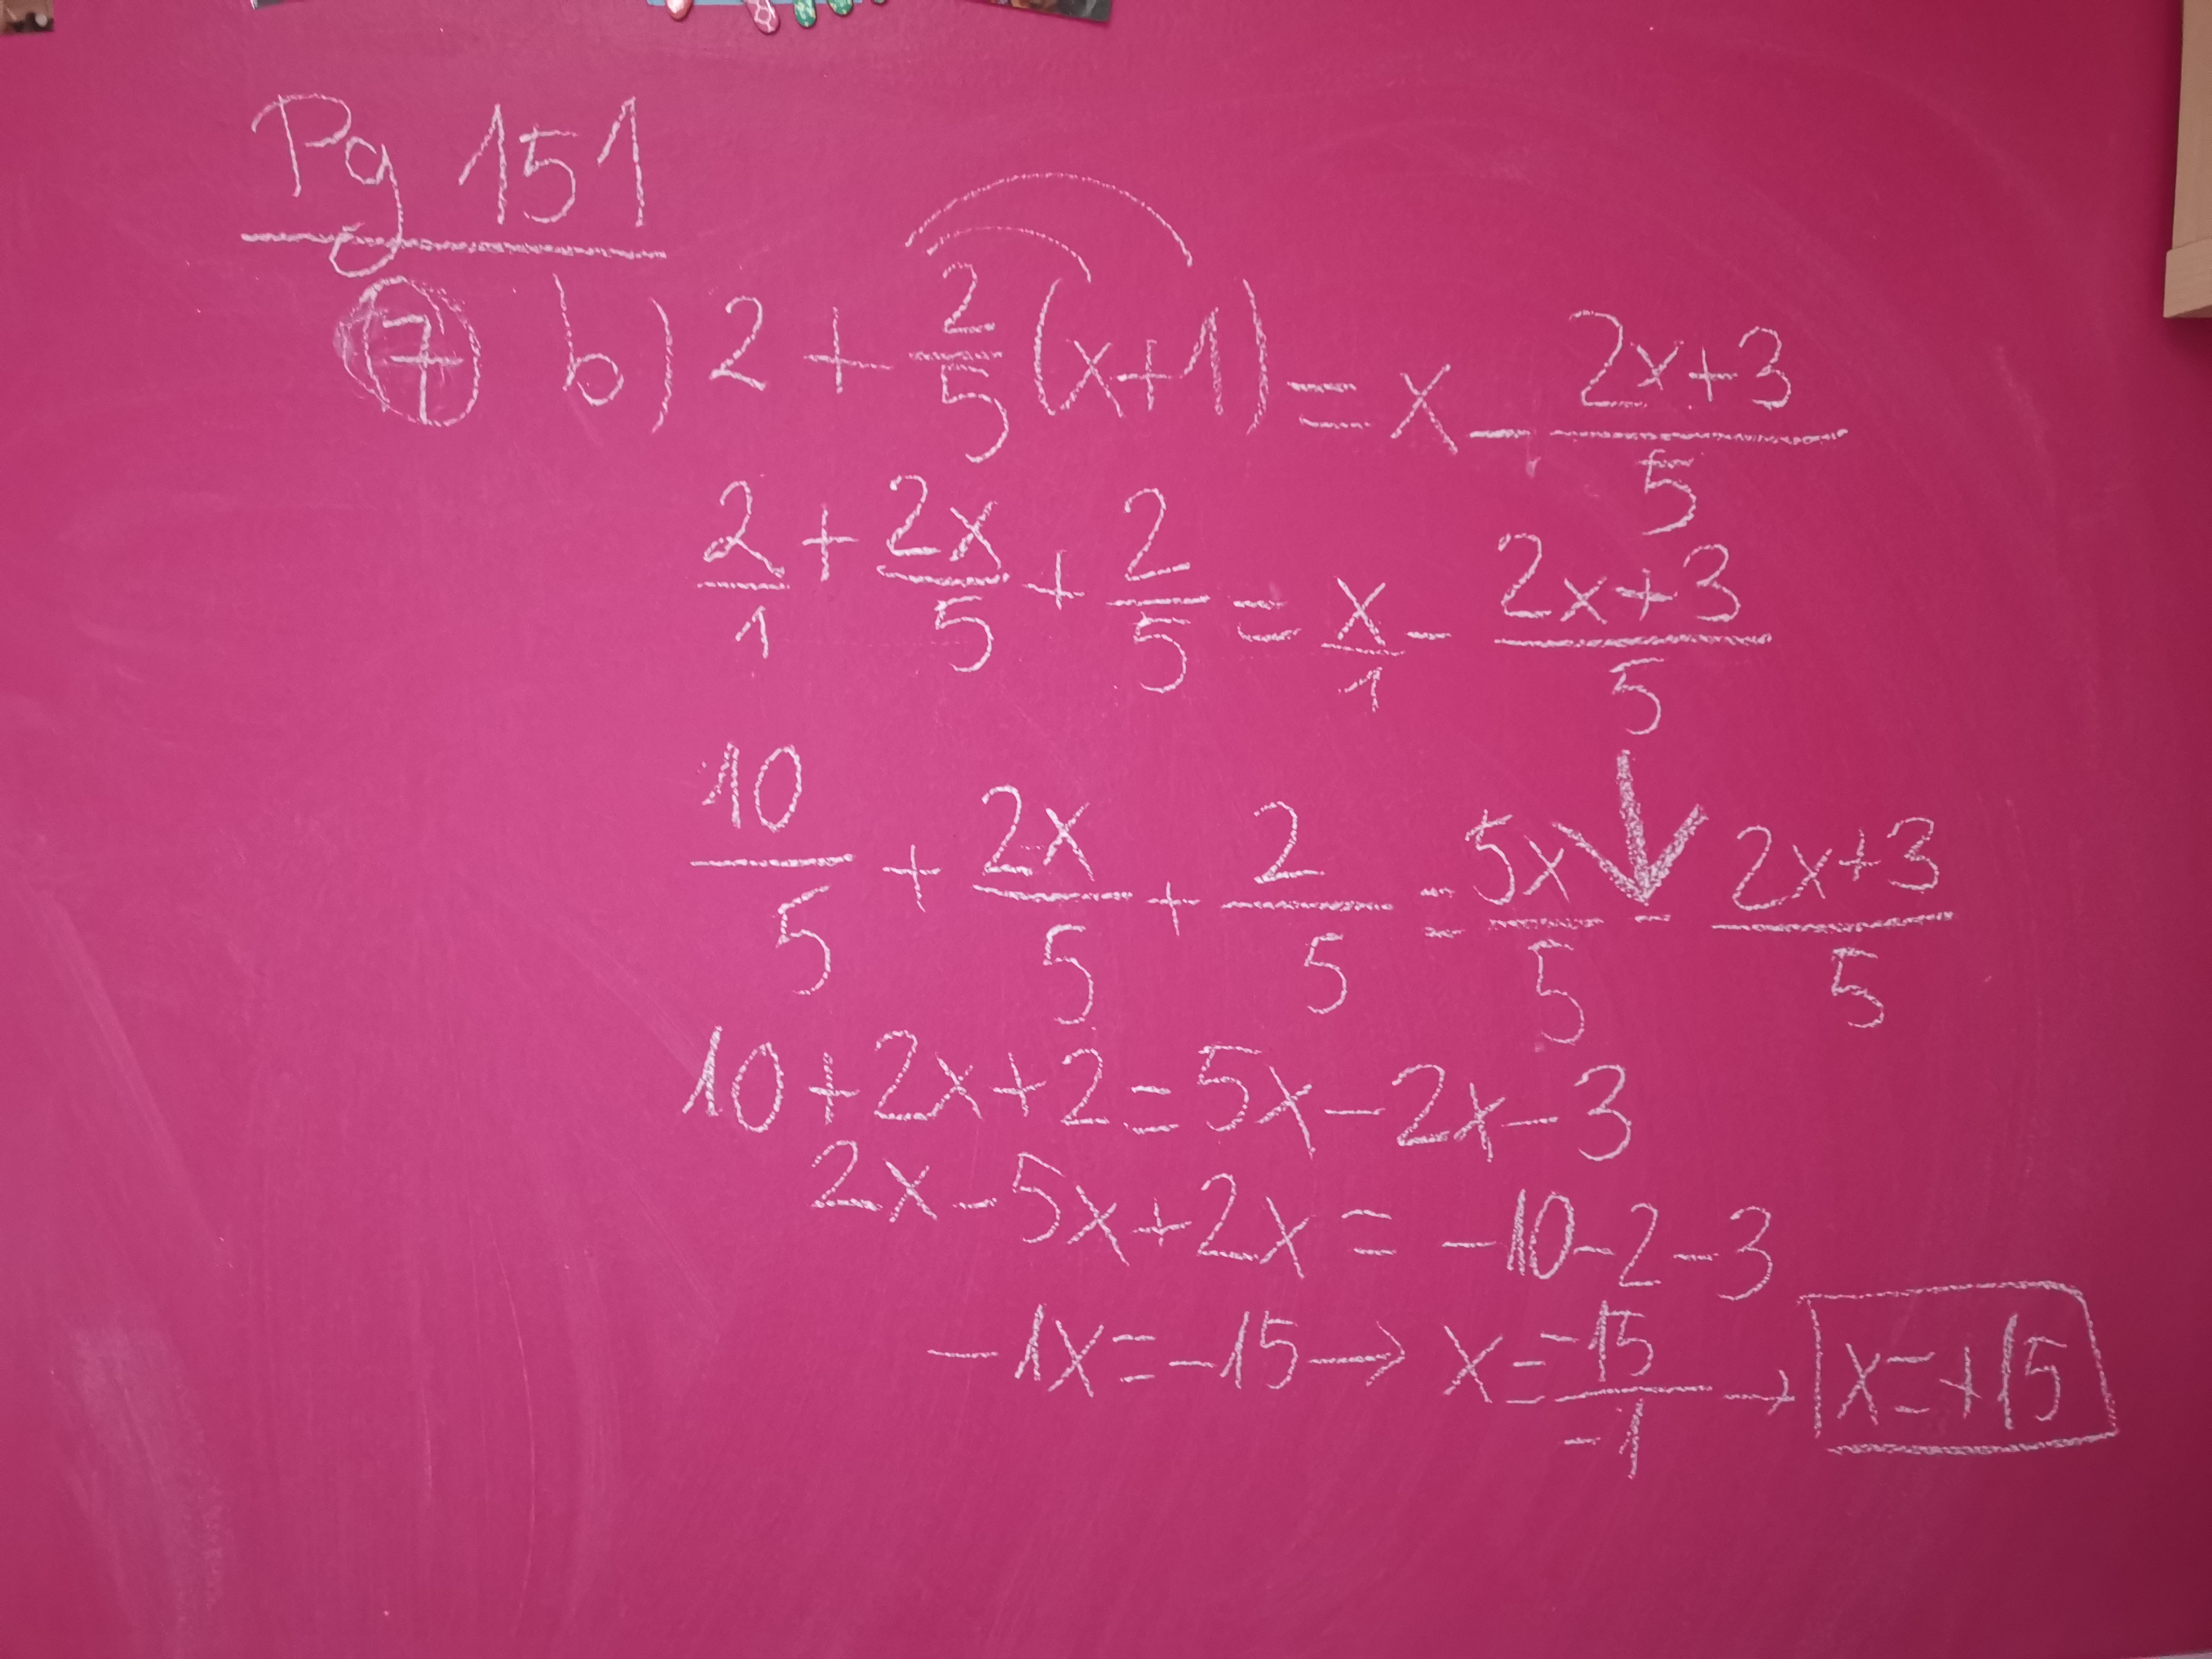 Pg 151
7 b) 2 + 2/5 (x+1) = x - (2x+3)/5
2/1 + 2x/5 + 2/5 = x/1 - (2x+3)/5
10/5 + 2x/5 + 2/5 = 5x/5 - (2x+3)/5
10+2x+2=5x-2x-3
2x-5x+2x = -10-2-3
-1x=-15 → x = -15/-1 → x=+15